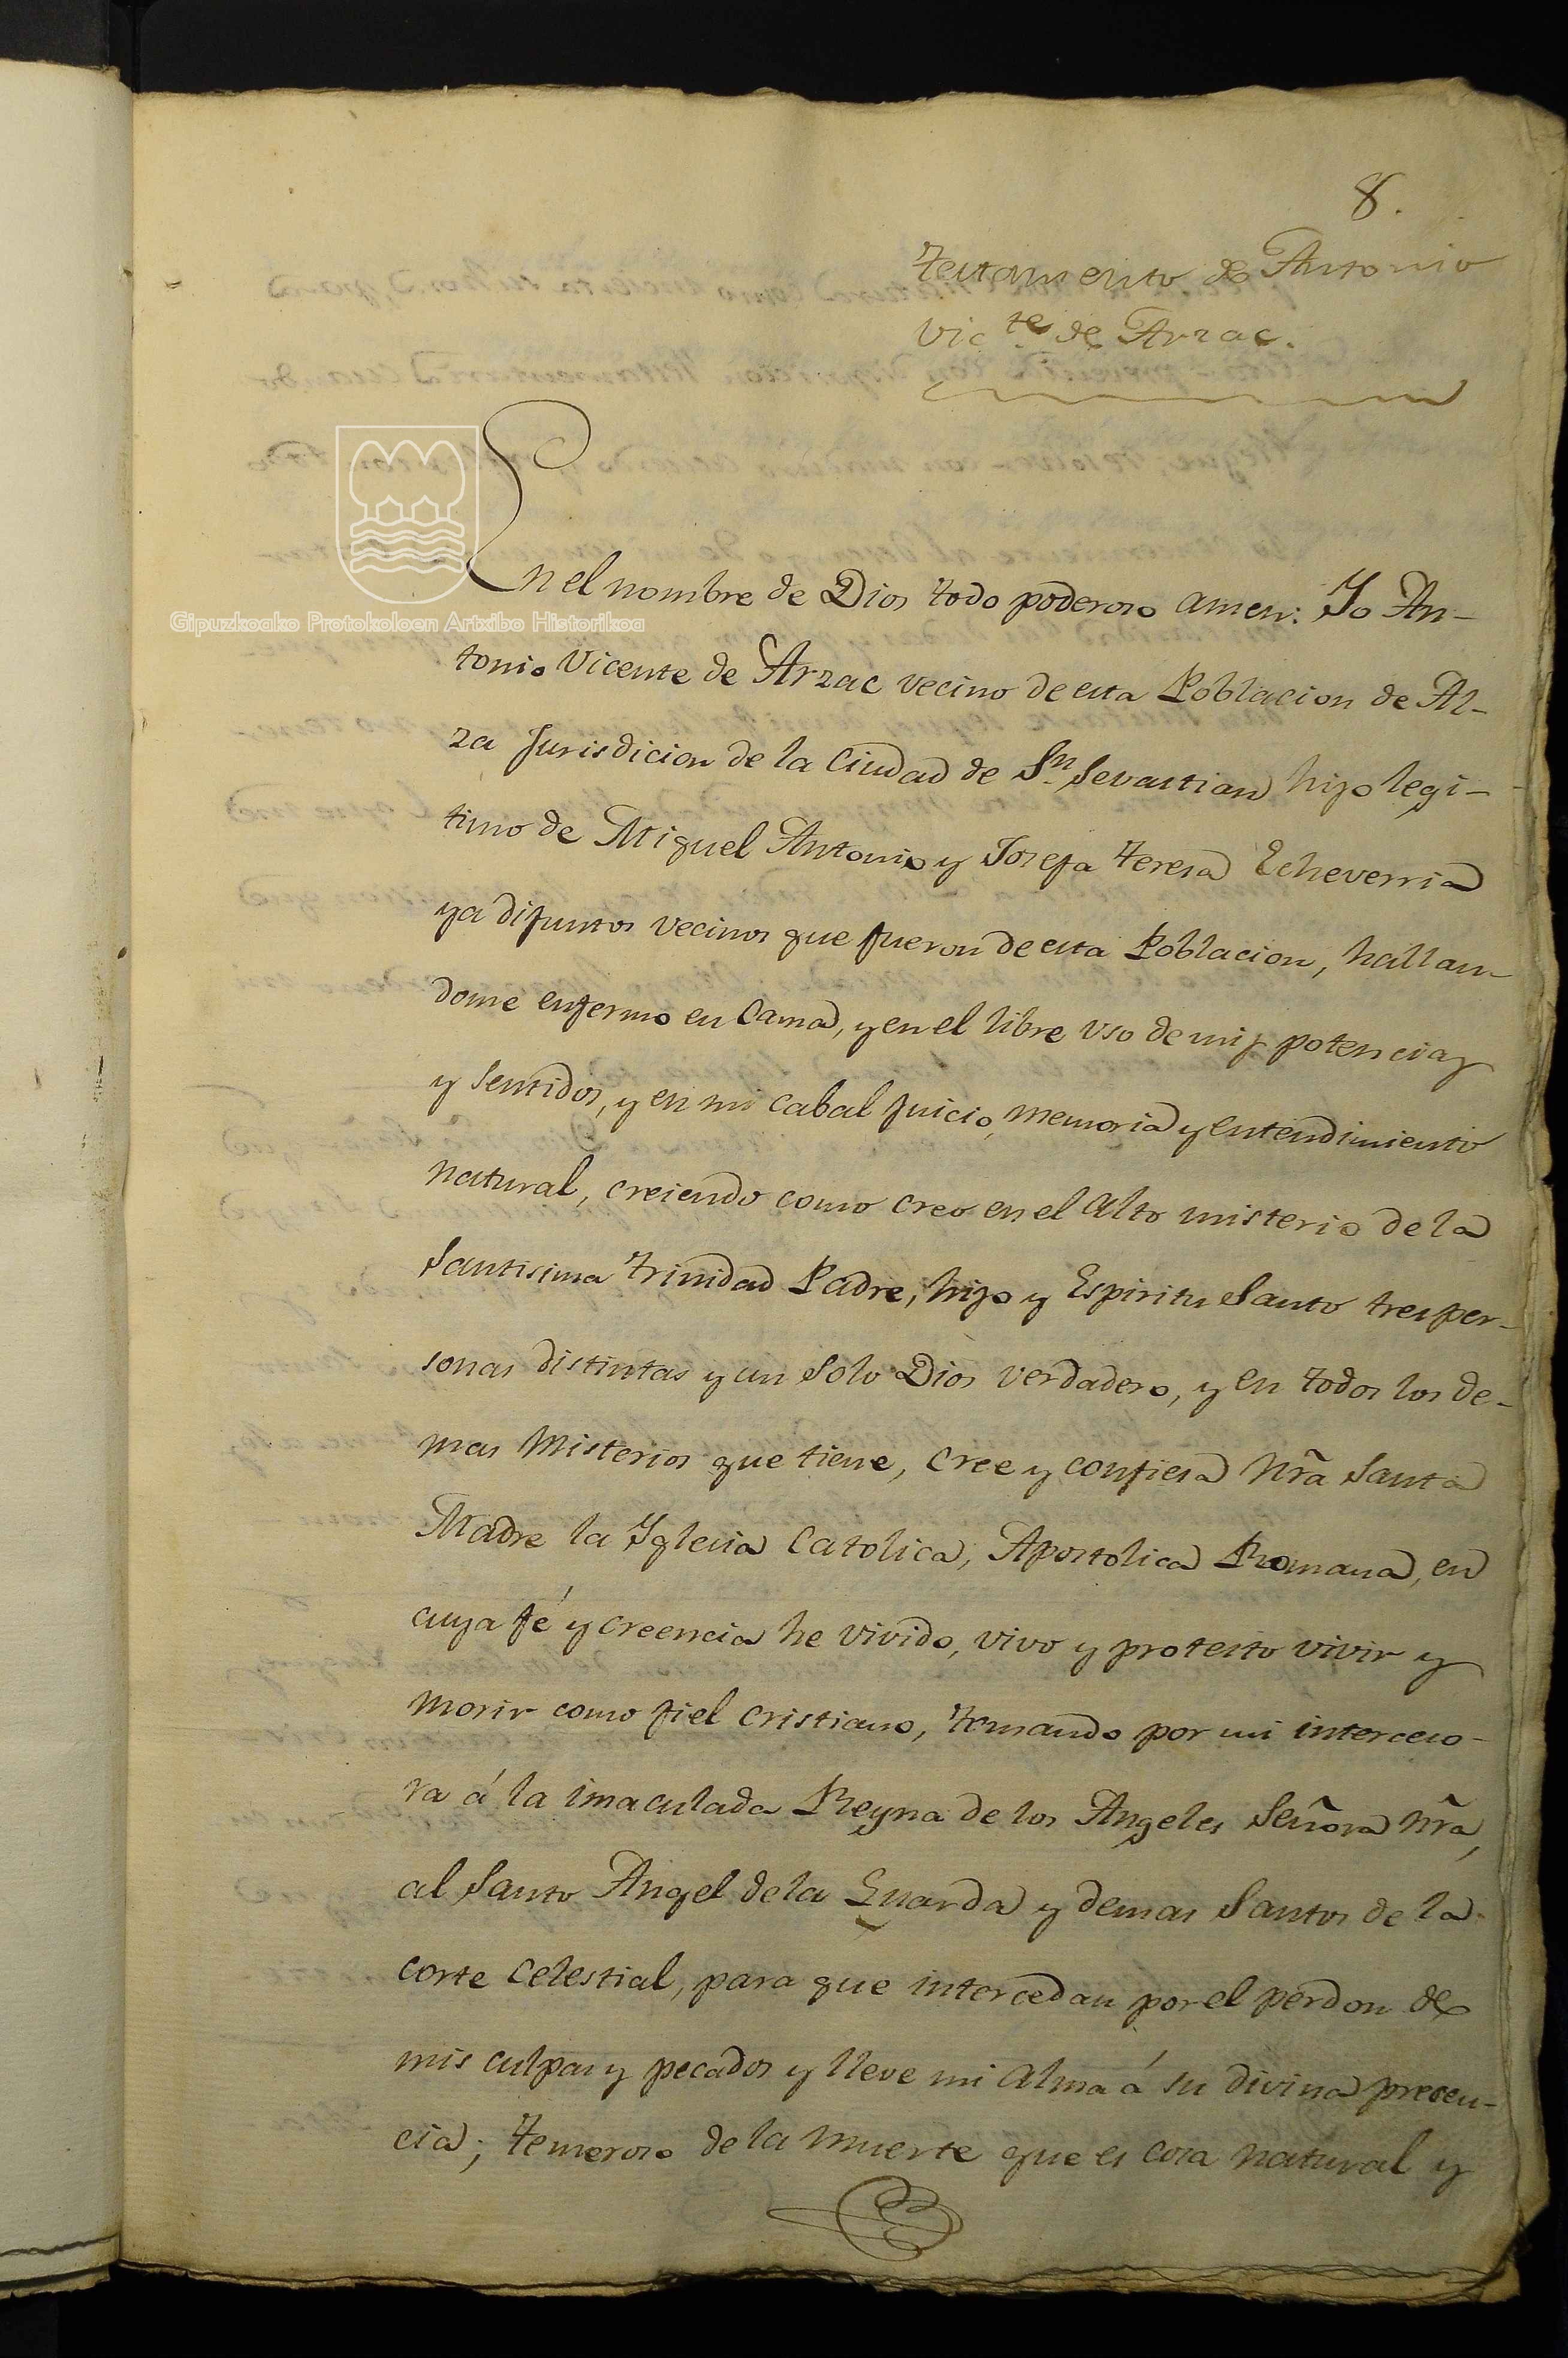 8.
Testamento de Antonio
Vic.te de Arzac.
En el nombre de Dios todo poderoso amen: Yo An-
tonio Vicente de Arzac vecino de esta Poblacion de Al-
za Jurisdicion de la Ciudad de Sn Sevastian hijo legi-
timo de Miguel Antonio y Josefa Teresa Echeverria
ya difuntos vecinos que fueron de esta Poblacion, hallan-
dome enfermo en Cama, y en el libre vso de mis potencias
y sentidos, y en mi cabal juicio, memoria y entendimiento
natural, creiendo como creo en el alto misterio de la
Santisima Trinidad Padre, hijo y Espiritu Santo tres per-
sonas distintas y un solo Dios verdadero, y en todos los de-
mas Misterios que tiene, cree y confiesa nrã Santa
Madre la Yglesia Catolica, Apostolica Romana, en
cuya fé y creencia he vivido, vivo y protesto vivir y
morir como fiel cristiano, tomando por mi interceso-
ra á la imaculada Reyna de los Angeles Señora nrã,
al Santo Angel de la Guarda y demas Santos de la
corte celestial, para que intercedan por el perdon de
mis culpas y pecados y lleve mi alma á su divina presen-
cia; temeroso de la muerte que es cosa natural y
Gipuzkoako Protokoloen Artxibo Historikoa